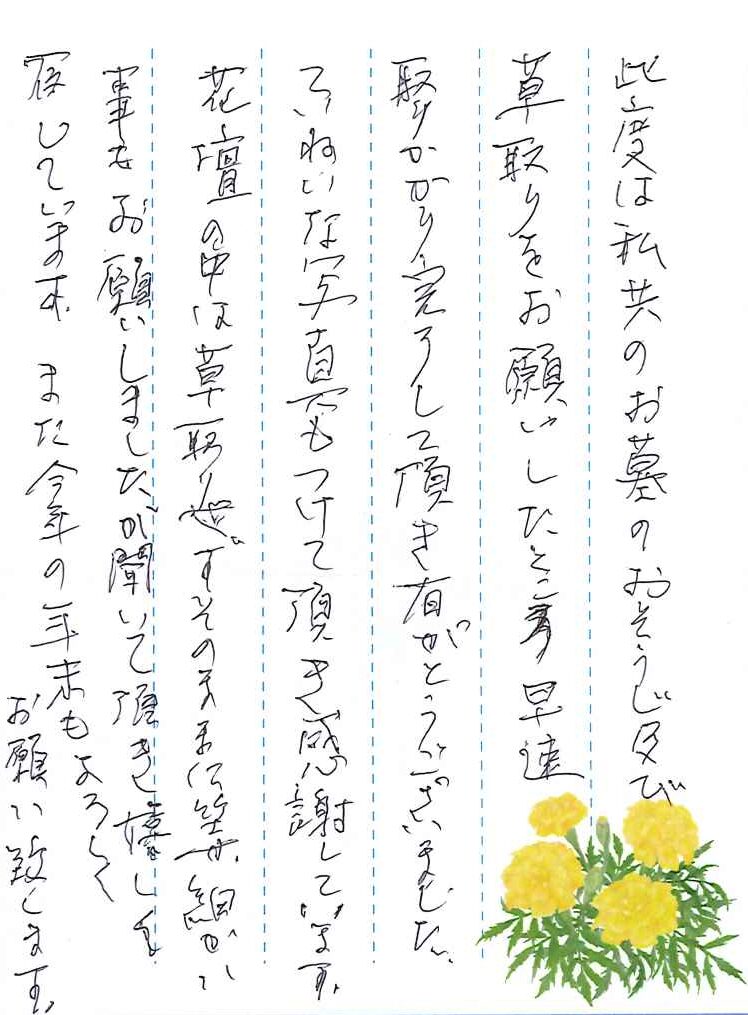 此度は私共のお墓のおそうじ及び
草取りをお願いしたところ早速
取りかかり完了して頂き有がとうございました。
きれいな写真でもつけて頂き感謝しています。
花壇の中は草取りせずそのままに等 細かい
事もお願いしましたが聞いて頂き嬉しく
しています。また今年の年末もよろしく
お願い致します。